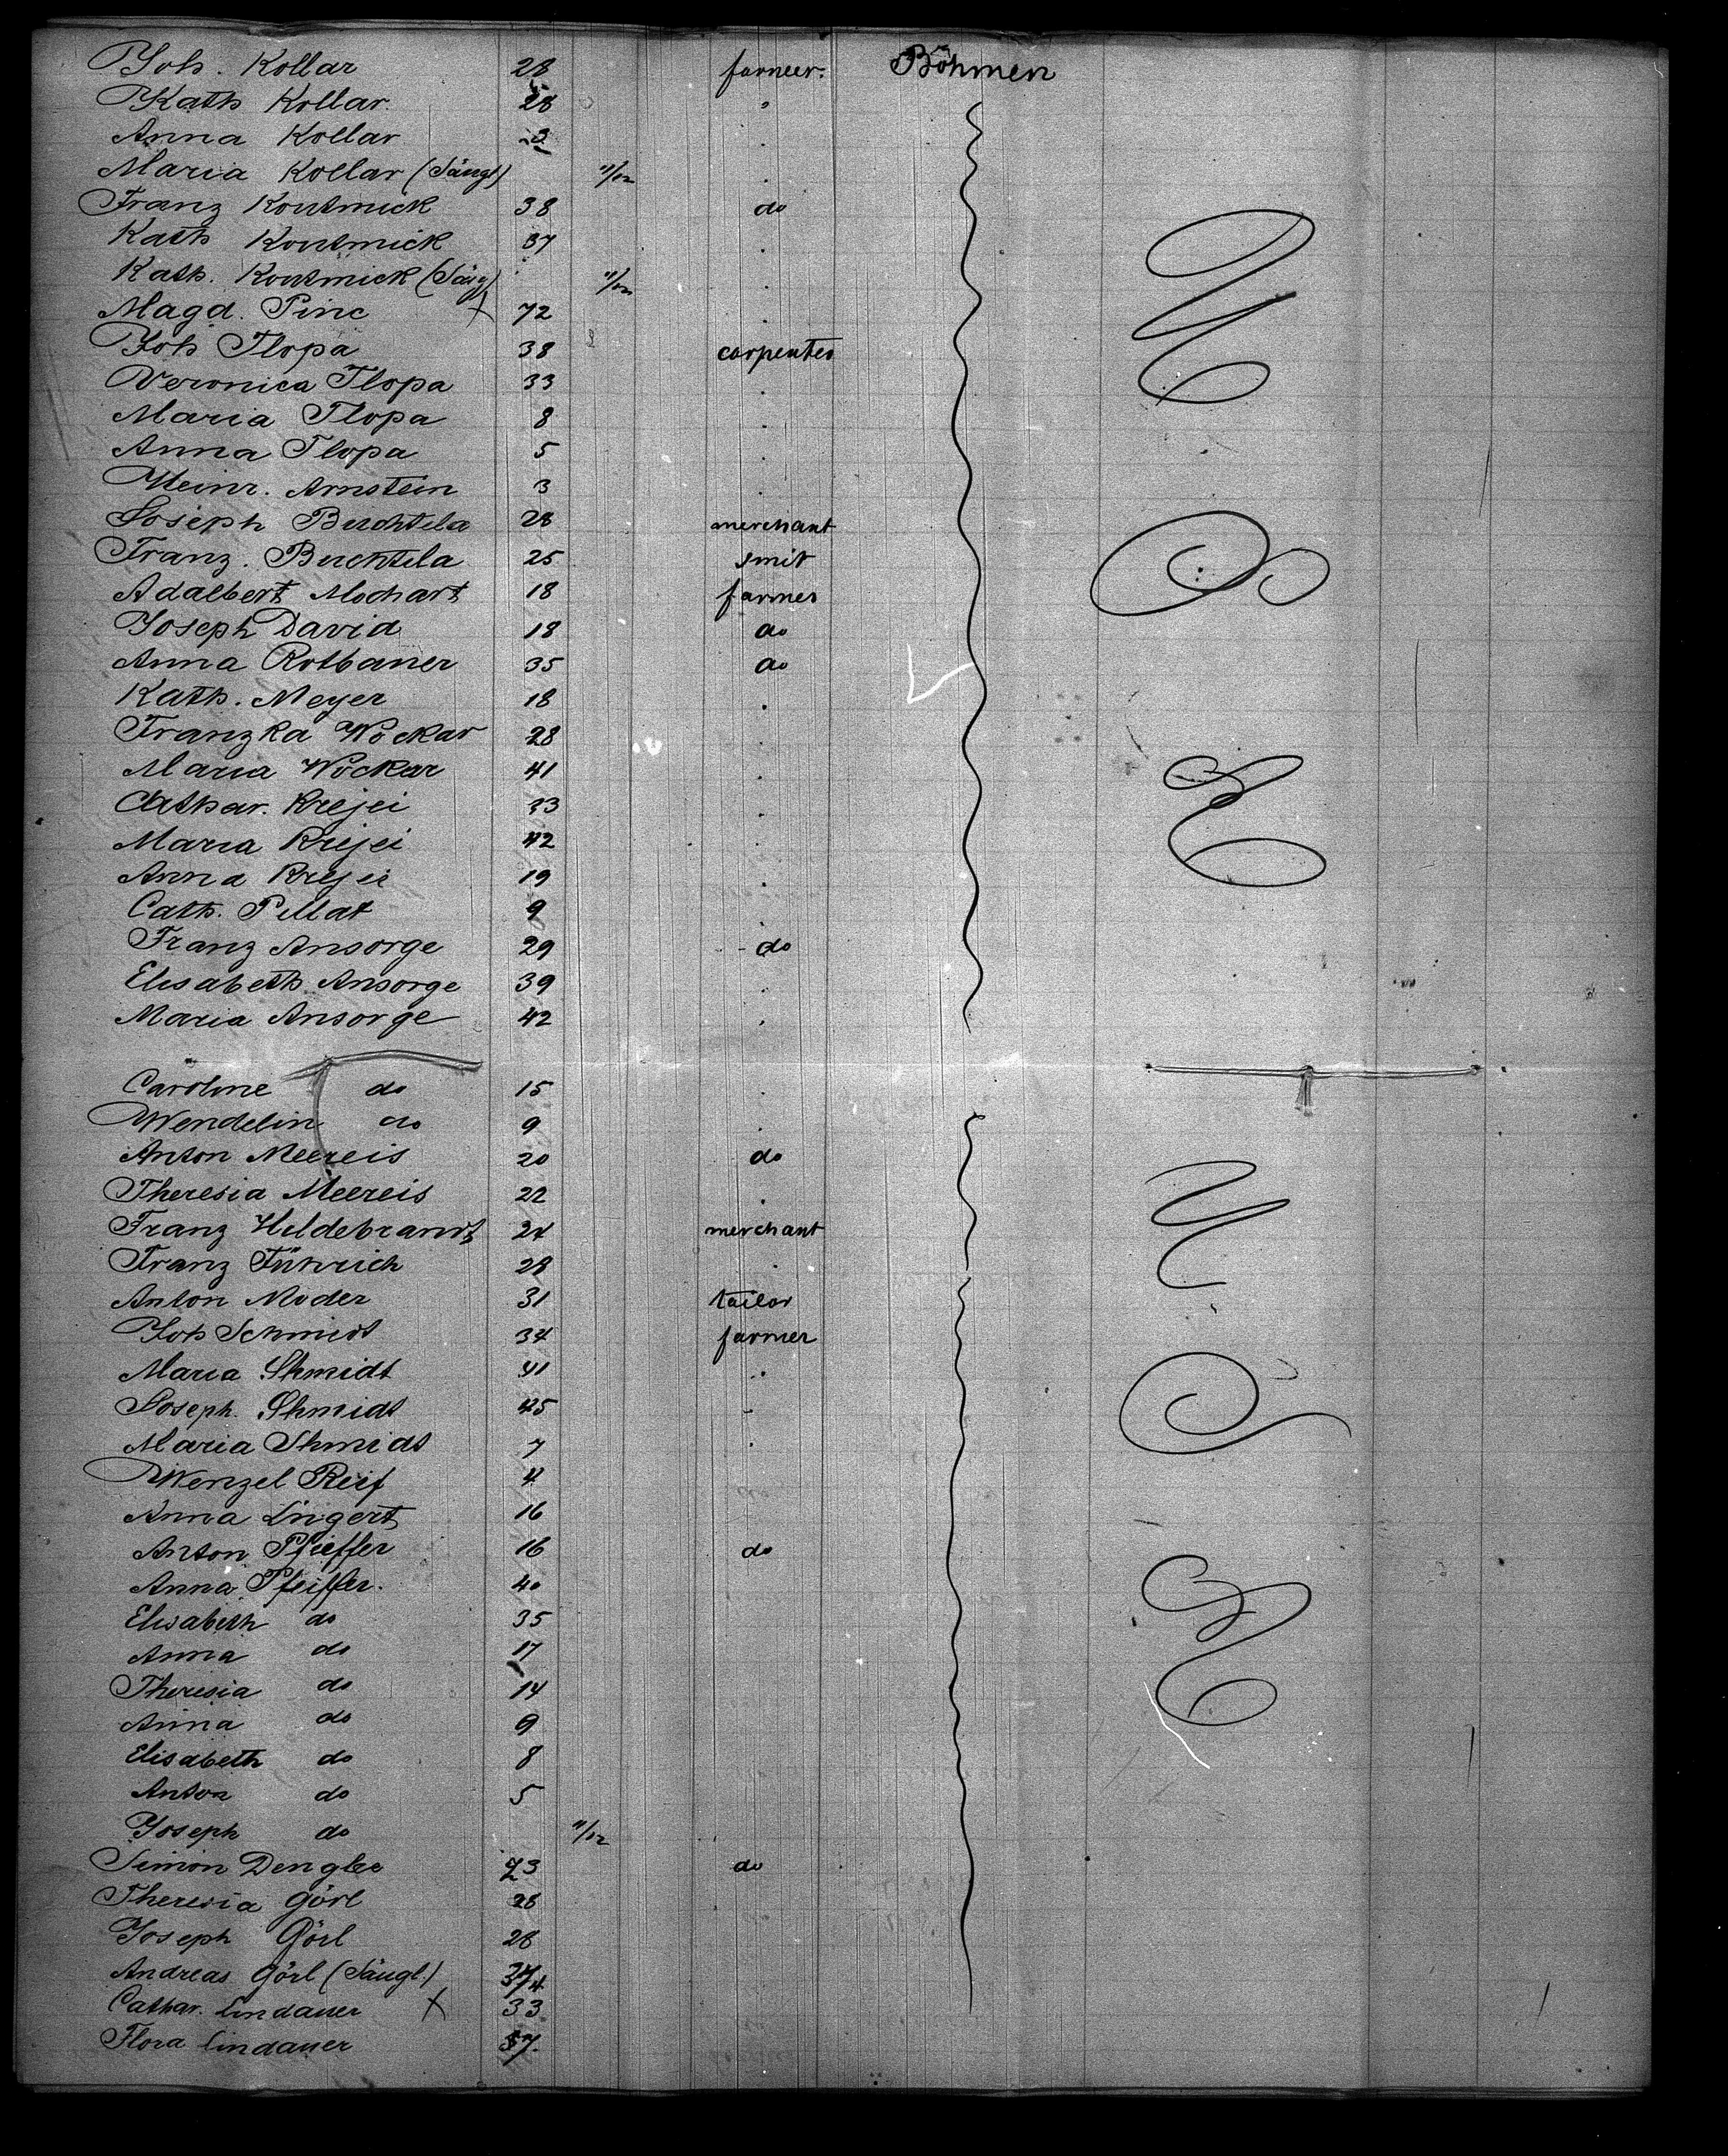 Joh. Kollar 28 farmer. Böhmen
Kath Kollar 28 "
Anna Kollar 3 "
Maria Kollar (Säugl) 11/12 "
Franz Koutmick 38 do
Kath Koutmick 37 "
Kath. Koutmick (Säug) 11/12 "
Magd. Pinc x 72 "
Joh Tlopa 38 carpenter
Veronica Tlopa 33 "
Maria Tlopa 8 "
Anna Tlopa 5 "
Heinr. Arnstein 3 "
Joseph Buchtela 28 merchant
Franz. Buchtela 25 smit
Adalbert Mochart 18 farmer
Joseph David 18 do
Anna Rotbauer 35 do
Kath. Meyer 18 "
Franzka Wockar 28 "
Maria Wockar 41 "
Cathar. Krejci 33 "
Maria Krejci 42 "
Anna Krejci 19 "
Cath. Pillat 9 "
Franz Ansorge 29 do
Elisabeth Ansorge 39 "
Maria Ansorge 42 "
Caroline do 15 "
Wendelin do 9 "
Anton Meereis 20 do
Theresia Meereis 22 "
Franz Hildebrandt 24 merchant
Franz Führich 28 "
Anton Moder 31 tailor
Joh Schmidt 34 farmer
Maria Shmidt 41 "
Joseph. Shmidt 45 "
Maria Shmidt 7 "
Wenzel Reif 4
Anna Lingert 16
Anton Pfieffer 16 do
Anna Pfeiffer. 40
Elisabeth do 35
Anna do 17
Theresia do 14
Anna do 9
Elisabeth do 8
Anton do 5
Joseph do 11/12
Simon Dengler 73 do
Theresia Görl 28
Joseph Görl 28
Andreas Görl (Säugl.)
Cathar. Lindauer x 33
Flora Lindauer 57.